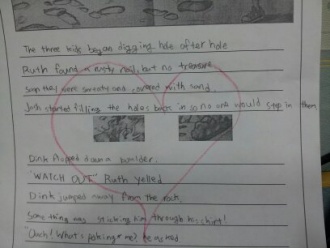 The three kids began digging hole after hole
Ruth found a rusty nail, but no treasure
Soon they were sweaty and covered with sand.
Josh started filling the holes back in so no one would step in them
Dink flopped down a boulder.
"WATCH OUT Ruth yelled
Dink jumped away from the rock
Something was sticking him through his shirt!
"Ouch! What's poking me? he